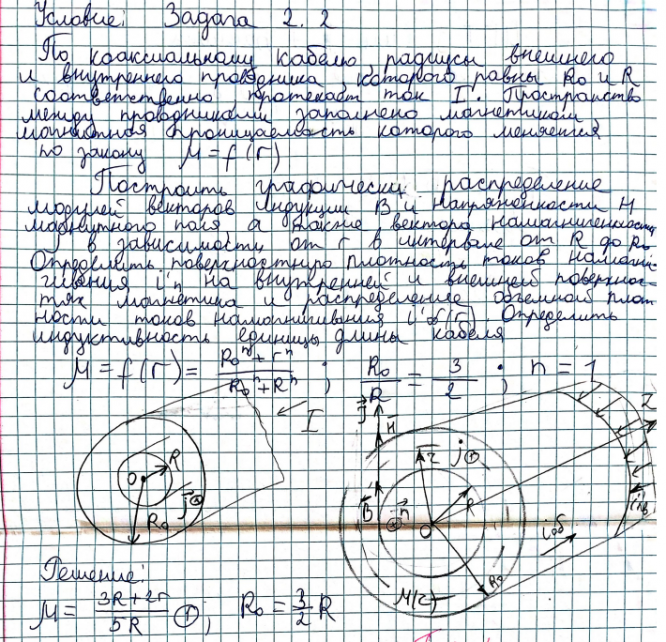 Условие: Задача 2.2
По коаксиальному кабелю, радиусы внешнего
и внутреннего проводника которого равны R₀ и R
соответственно протекает ток I. Пространство
между проводниками заполнено магнетиком
магнитная проницаемость которого меняется
по закону μ = f(r)
Построить графически распределение
модулей векторов индукции B и напряженности H
магнитного поля а также вектора намагниченности
J в зависимости от r в интервале от R до R₀
Определить поверхностную плотность токов намагни-
чивания i'п на внутренней и внешней поверхнос-
тях магнетика и распределение объемной плот-
ности токов намагничивания i'об(r). Определить
индуктивность единицы длины кабеля
μ = f(r) = (R₀ⁿ + rⁿ)/(R₀ⁿ + Rⁿ) ; R₀/R = 3/2 ; n = 1
I
O R j⊕
R₀
J H B n
τ j⊕
O R
R₀
μ(r)
Z
i'пв
i'об
Решение:
μ = (3R + 2r)/5R ⊕; R₀ = 3/2 R